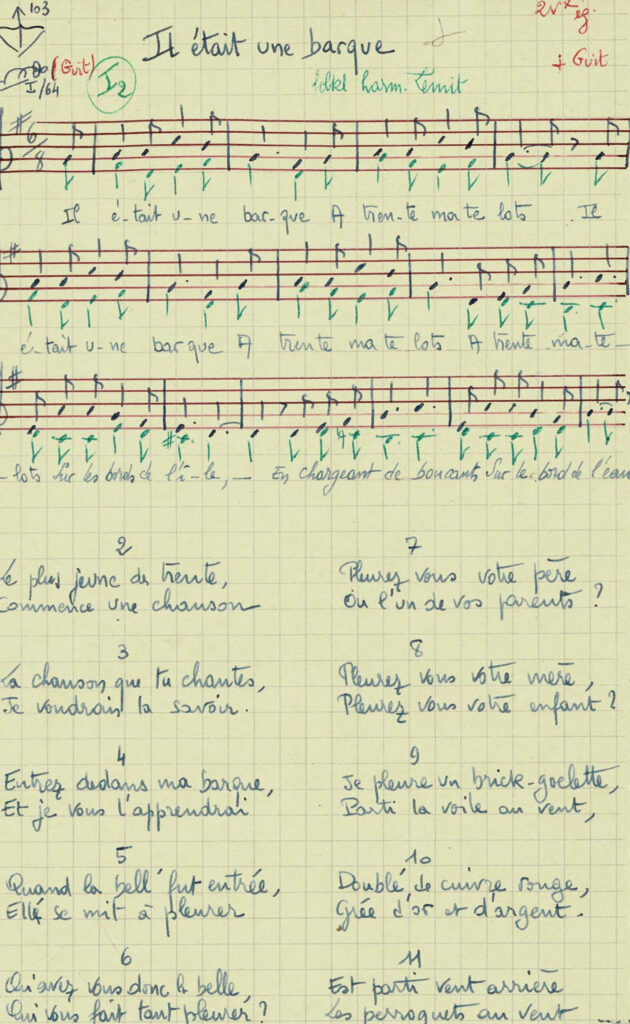 103
2 vx eg.
Il était une barque
(Guit)
+ Guit
I/64
I2
harm.
6/8
Il é-tait u-ne bar-que A tren-te ma te lots Il
é-tait u-ne bar que A trente ma te lots A trente ma-te-
-lots Sur les bords de l'i-le, - En chargeant de boucants Sur le bord de l'eau
2
Le plus jeune des trente,
Commence une chanson
3
La chanson que tu chantes,
Je voudrais la savoir.
4
Entrez dedans ma barque,
Et je vous l'apprendrai
5
Quand la bell' fut entrée,
Elle se mit à pleurer
6
Qu'avez vous donc la belle,
Qui vous fait tant pleurer ?
7
Pleurez vous votre père
Ou l'un de vos parents ?
8
Pleurez vous votre mère,
Pleurez vous votre enfant ?
9
Je pleure un brick-goelette,
Parti la voile au vent,
10
Doublé de cuivre rouge,
Grée d'or et d'argent.
11
Est parti vent arrière
Les perroquets au vent